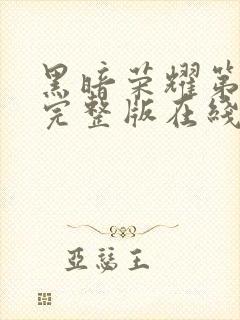 黑暗荣耀第
完整版在线
亞瑟王